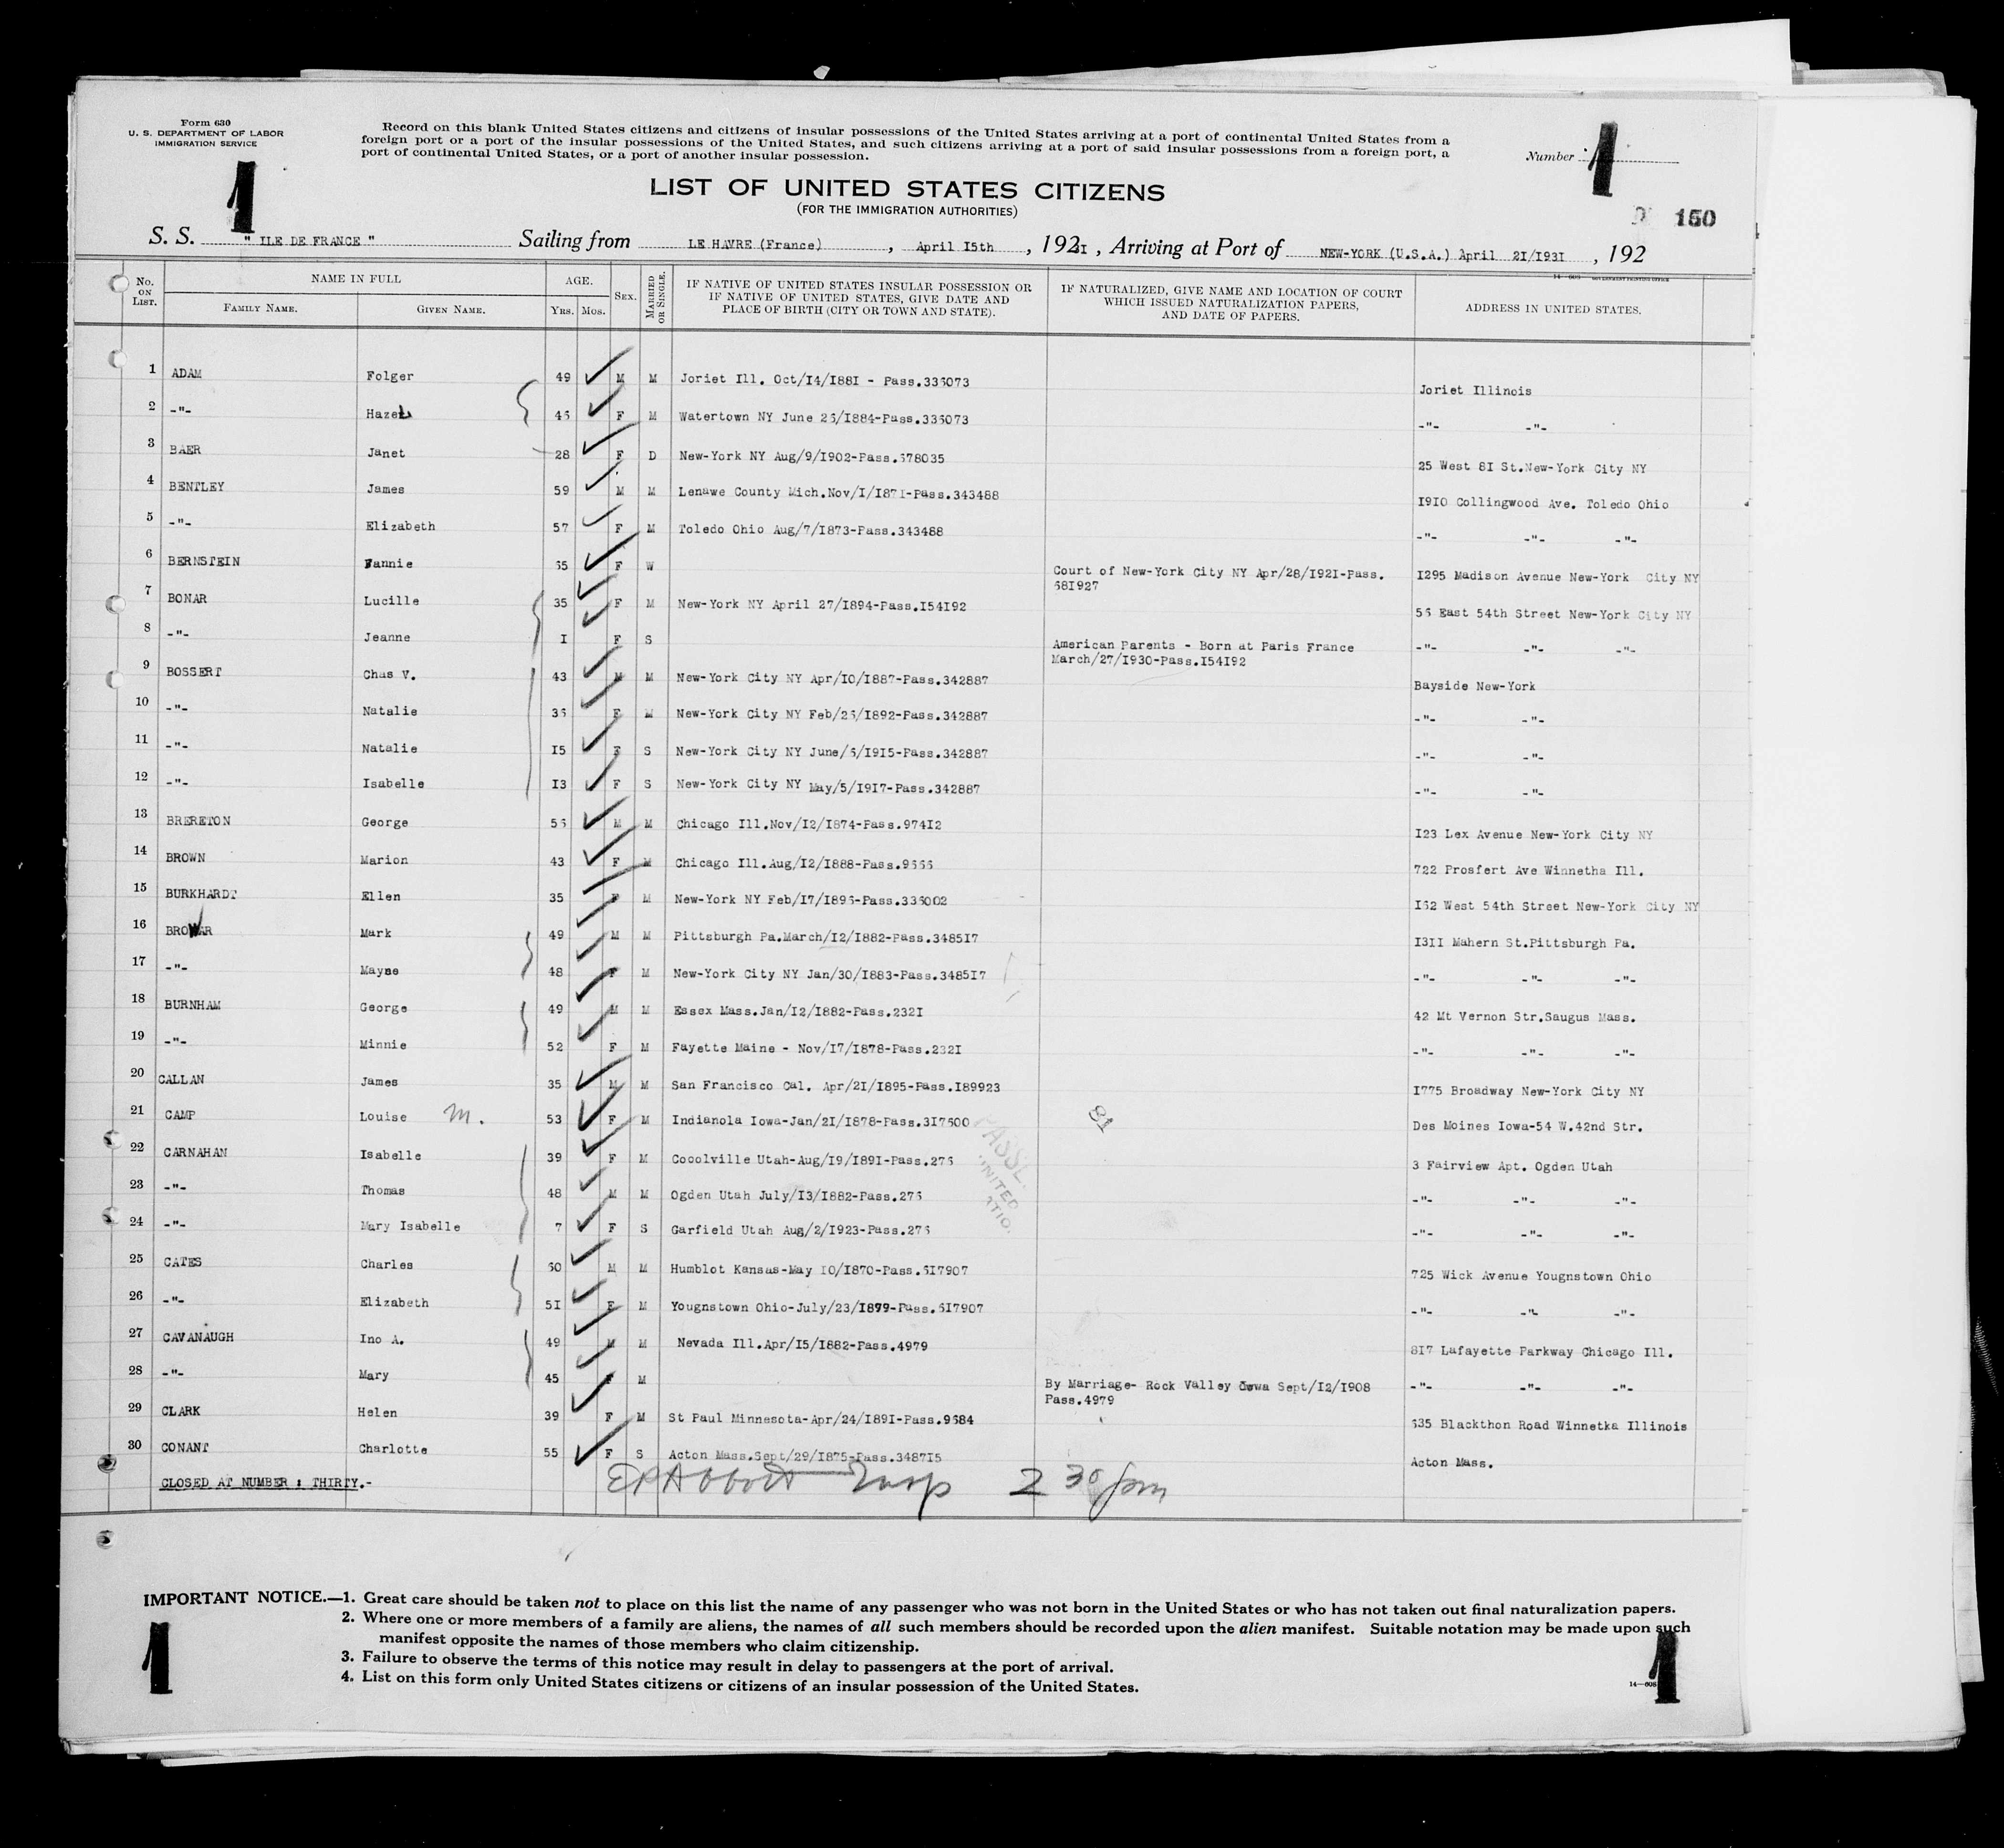 Form 630
U. S. DEPARTMENT OF LABOR
IMMIGRATION SERVICE
Record on this blank United States citizens and citizens of insular possessions of the United States arriving at a port of continental United States from a
foreign port or a port of the insular possessions of the United States, and such citizens arriving at a port of said insular possessions from a foreign port, a
port of continental United States, or a port of another insular possession.
Number 1
1
LIST OF UNITED STATES CITIZENS
(FOR THE IMMIGRATION AUTHORITIES)
150
S. S. " ILE DE FRANCE " Sailing from LE HAVRE (France) , April I5th , 1921 , Arriving at Port of NEW-YORK (U.S.A.) April 2I/I93I , 192
No. ON LIST. NAME IN FULL AGE. SEX. MARRIED OR SINGLE. IF NATIVE OF UNITED STATES INSULAR POSSESSION OR IF NATIVE OF UNITED STATES, GIVE DATE AND PLACE OF BIRTH (CITY OR TOWN AND STATE). IF NATURALIZED, GIVE NAME AND LOCATION OF COURT WHICH ISSUED NATURALIZATION PAPERS, AND DATE OF PAPERS. ADDRESS IN UNITED STATES.
FAMILY NAME. GIVEN NAME. YRS. MOS.
1 ADAM Folger 49 M M Joriet Ill. Oct/I4/I88I - Pass.335073 Joriet Illinois
2 -"- Hazel 46 F M Watertown NY June 25/I884-Pass.335073 -"- -"-
3 BAER Janet 28 F D New-York NY Aug/9/I902-Pass.578035 25 West 8I St.New-York City NY
4 BENTLEY James 59 M M Lenawe County Mich.Nov/I/I87I-Pass.343488 I9I0 Collingwood Ave. Toledo Ohio
5 -"- Elizabeth 57 F M Toledo Ohio Aug/7/I873-Pass.343488 -"- -"- -"-
6 BERNSTEIN Fannie 55 F W Court of New-York City NY Apr/28/I92I-Pass. I295 Madison Avenue New-York City NY
581927
7 BONAR Lucille 35 F M New-York NY April 27/I894-Pass.I54I92 55 East 54th Street New-York City NY
8 -"- Jeanne I F S American Parents - Born at Paris France -"- -"- -"-
March/27/I930-Pass.I54I92
9 BOSSERT Chas V. 43 M M New-York City NY Apr/I0/I887-Pass.342887 Bayside New-York
10 -"- Natalie 35 F M New-York City NY Feb/25/I892-Pass.342887 -"- -"-
11 -"- Natalie I5 F S New-York City NY June/5/I9I5-Pass.342887 -"- -"-
12 -"- Isabelle I3 F S New-York City NY May/5/I9I7-Pass.342887 -"- -"-
13 BRERETON George 56 M M Chicago Ill.Nov/I2/I874-Pass.974I2 I23 Lex Avenue New-York City NY
14 BROWN Marion 43 F M Chicago Ill.Aug/I2/I888-Pass.9555 722 Prosfert Ave Winnetha Ill.
15 BURKHARDT Ellen 35 F M New-York NY Feb/I7/I895-Pass.335002 I52 West 54th Street New-York City NY
16 BROWAR Mark 49 M M Pittsburgh Pa.March/I2/I882-Pass.3485I7 I3II Mahern St.Pittsburgh Pa.
17 -"- Mayse 48 F M New-York City NY Jan/30/I883-Pass.3485I7 -"- -"- -"-
18 BURNHAM George 49 M M Essex Mass.Jan/I2/I882-Pass.232I 42 Mt Vernon Str.Saugus Mass.
19 -"- Minnie 52 F M Fayette Maine - Nov/I7/I878-Pass.232I -"- -"- -"-
20 CALLAN James 35 M M San Francisco Cal. Apr/2I/I895-Pass.I89923 I775 Broadway New-York City NY
21 CAMP Louise M. 53 F M Indianola Iowa-Jan/2I/I878-Pass.3I7500 81 Des Moines Iowa-54 W.42nd Str.
22 CARNAHAN Isabelle 39 F M Cocolville Utah-Aug/I9/I89I-Pass.275 3 Fairview Apt. Ogden Utah
23 -"- Thomas 48 M M Ogden Utah July/I3/I882-Pass.275 -"- -"- -"-
24 -"- Mary Isabelle 7 F S Garfield Utah Aug/2/I923-Pass.275 -"- -"- -"-
25 CATES Charles 60 M M Humblot Kansas-May I0/I870-Pass.5I7907 725 Wick Avenue Yougnstown Ohio
26 -"- Elizabeth 5I F M Yougnstown Ohio-July/23/I879-Pass.5I7907 -"- -"- -"-
27 CAVANAUGH Ino A. 49 M M Nevada Ill.Apr/I5/I882-Pass.4979 8I7 Lafayette Parkway Chicago Ill.
28 -"- Mary 45 F M By Marriage- Rock Valley Iowa Sept/I2/I908 -"- -"- -"-
Pass.4979
29 CLARK Helen 39 F M St Paul Minnesota-Apr/24/I89I-Pass.9584 535 Blackthon Road Winnetka Illinois
30 CONANT Charlotte 55 F S Acton Mass.Sept/29/I875-Pass.3487I5 Acton Mass.
CLOSED AT NUMBER : THIRTY.-
EPAbbott Insp 2 30 pm
IMPORTANT NOTICE.—1. Great care should be taken not to place on this list the name of any passenger who was not born in the United States or who has not taken out final naturalization papers.
2. Where one or more members of a family are aliens, the names of all such members should be recorded upon the alien manifest. Suitable notation may be made upon such
manifest opposite the names of those members who claim citizenship.
3. Failure to observe the terms of this notice may result in delay to passengers at the port of arrival.
4. List on this form only United States citizens or citizens of an insular possession of the United States.
1
1